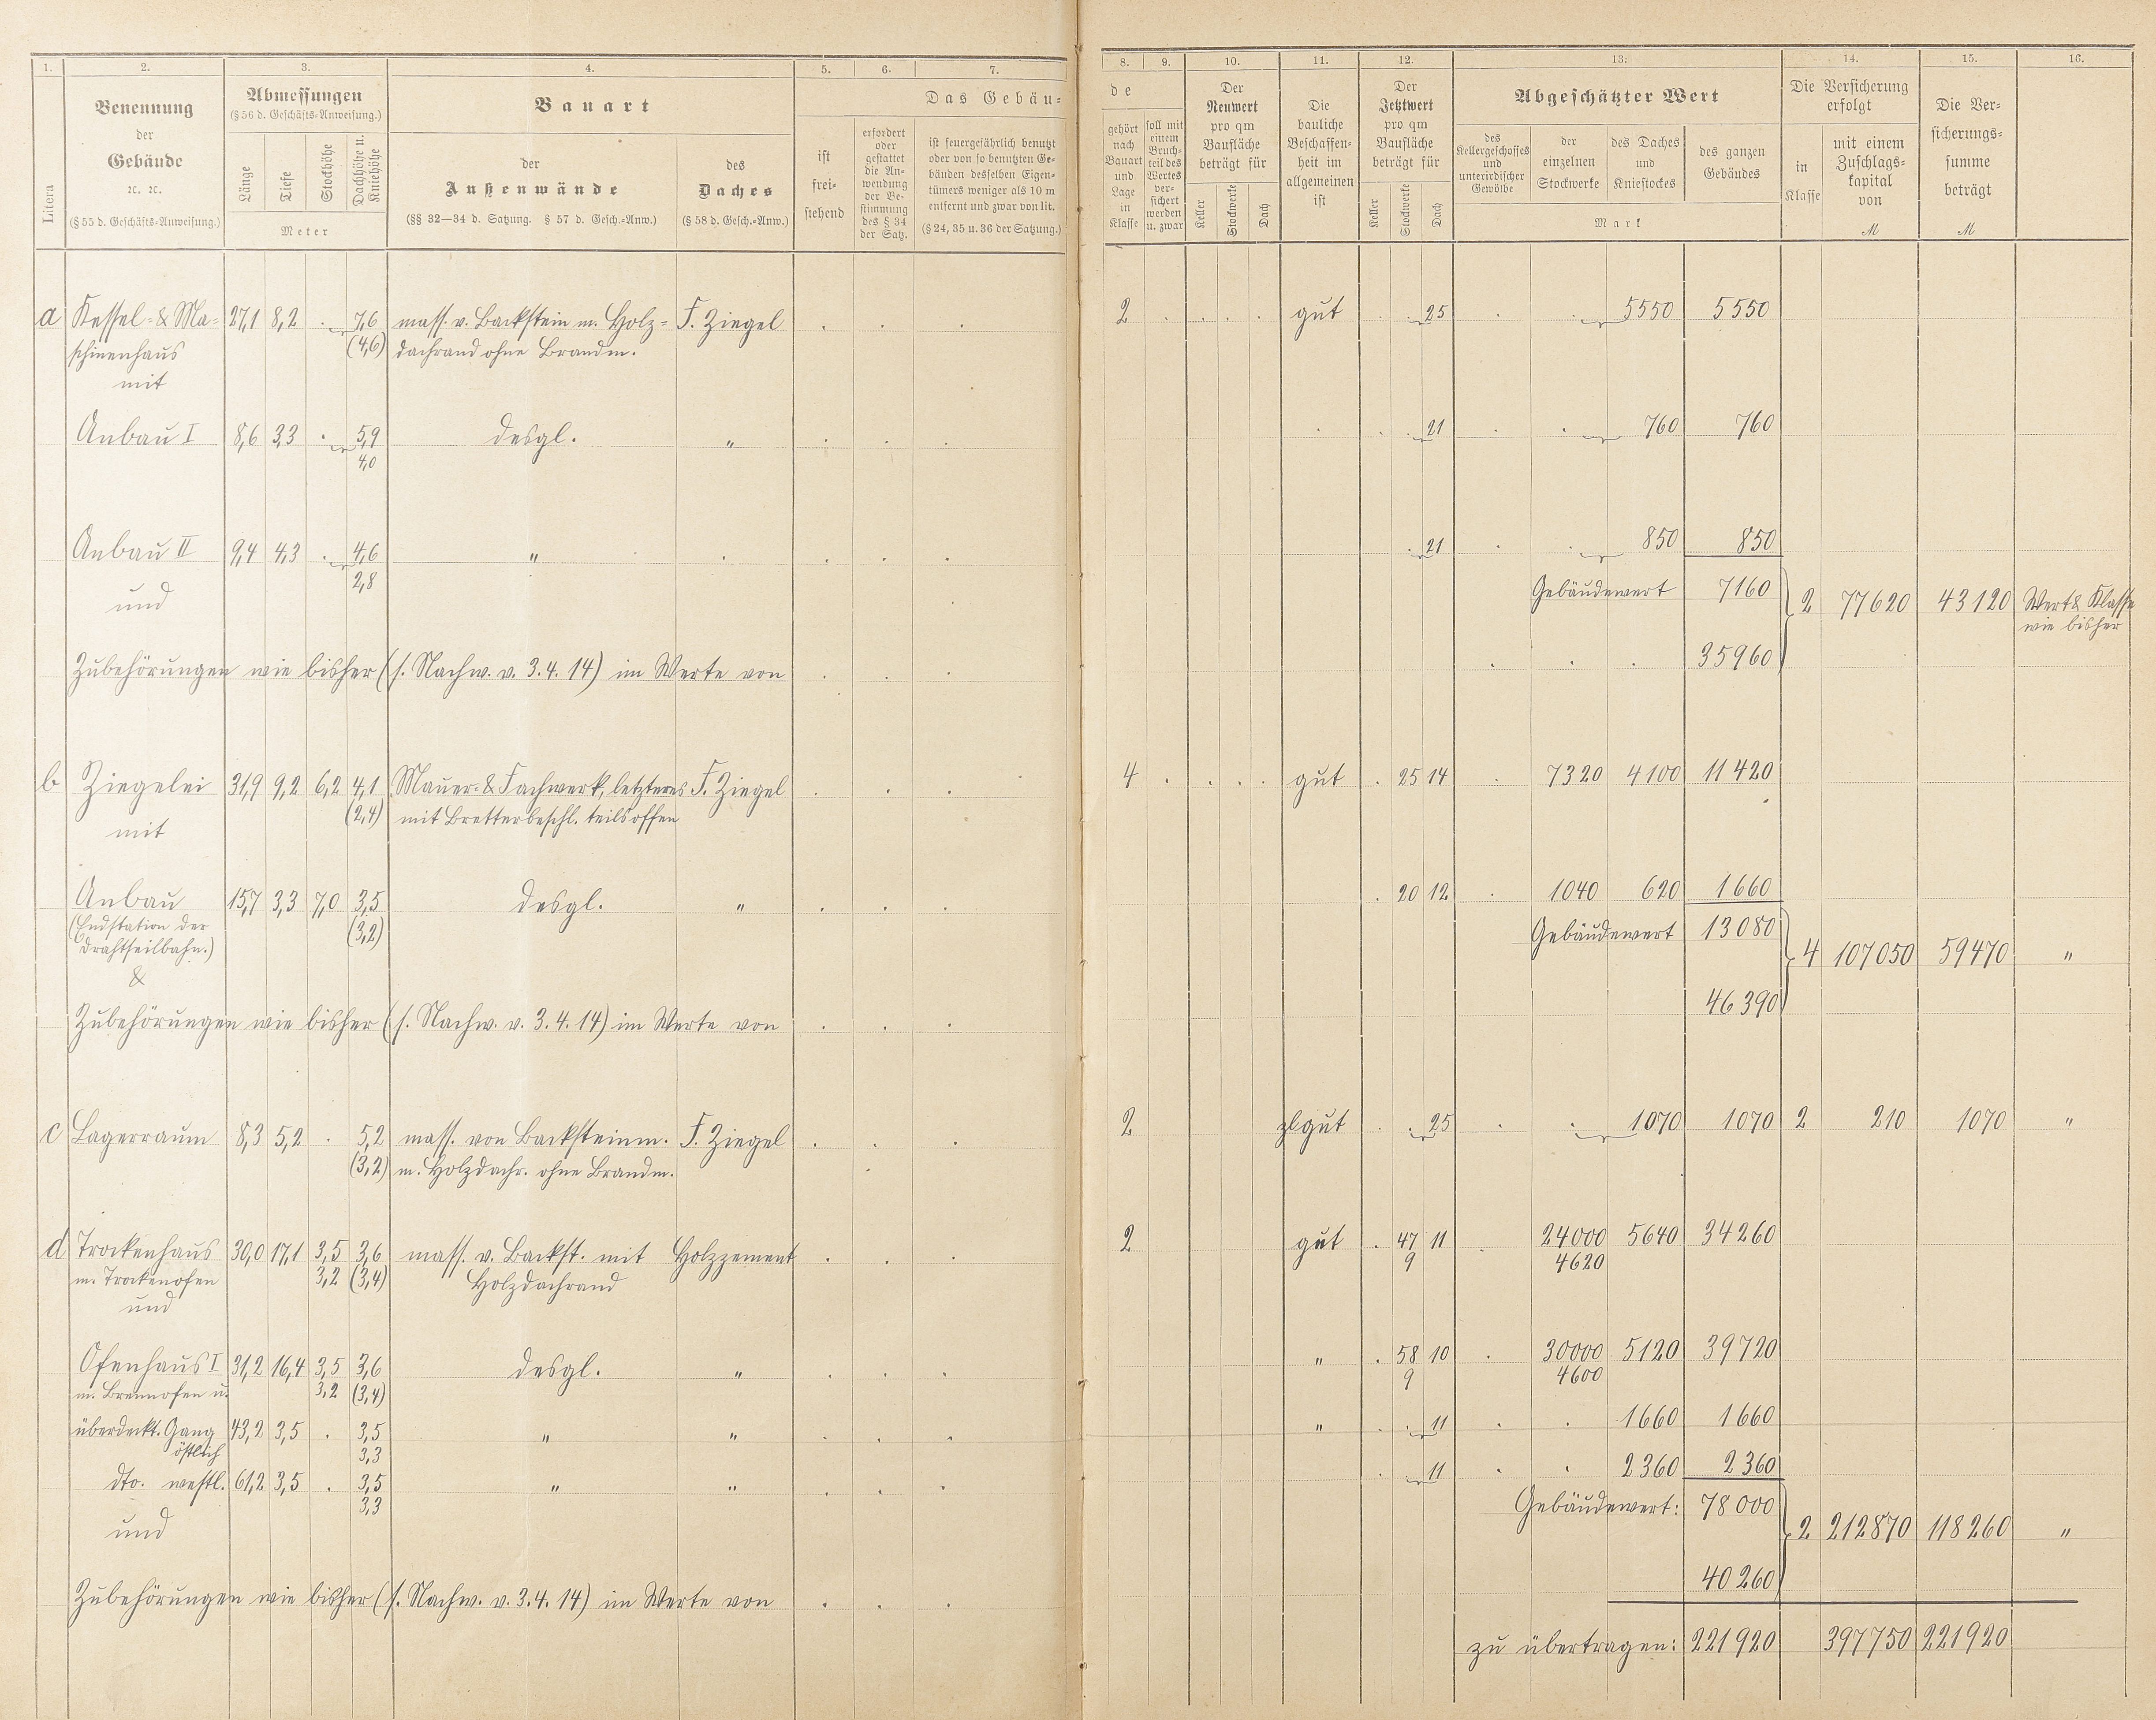 1. 2. 3. 4. 5. 6. 7. 8. 9. 10. 11. 12. 13. 14. 15. 16.
Litera
Benennung
der
Gebäude
ꝛc. ꝛc.
(§ 55 d. Geschäfts-Anweisung.)
Abmessungen
(§ 56 d. Geschäfts-Anweisung.)
Länge
Tiefe
Stockhöhe
Dachhöhe u.
Kniehöhe
Meter
Bauart
der
Außenwände
(§§ 32—34 d. Satzung. § 57 d. Gesch.-Anw.)
des
Daches
(§ 58 d. Gesch.-Anw.)
Das Gebäu-
ist
frei-
stehend
erfordert
oder
gestattet
die An-
wendung
der Be-
stimmung
des § 34
der Satz.
ist feuergefährlich benutzt
oder von so benutzten Ge-
bäuden desselben Eigen-
tümers weniger als 10 m
entfernt und zwar von lit.
(§ 24, 35 u. 36 der Satzung.)
de
gehört
nach
Bauart
und
Lage
in
Klasse
soll mit
einem
Bruch-
teil des
Wertes
ver-
sichert
werden
u. zwar
Der
Neuwert
pro qm
Baufläche
beträgt für
Keller
Stockwerke
Dach
Die
bauliche
Beschaffen-
heit im
allgemeinen
ist
Der
Jetztwert
pro qm
Baufläche
beträgt für
Keller
Stockwerke
Dach
Abgeschätzter Wert
des
Kellergeschosses
und
unterirdischer
Gewölbe
der
einzelnen
Stockwerke
des Daches
und
Kniestockes
des ganzen
Gebäudes
Mark
Die Versicherung
erfolgt
in
Klasse
mit einem
Zuschlags-
kapital
von
M
Die Ver-
sicherungs-
summe
beträgt
M
a Kessel- & Ma- 27,1 8,2 . 7,6 mass. v. Backstein m. Holz- F. Ziegel . . . 2 . . . . gut . . 25 . . 5550 5550
schinenhaus (4,6) dachrand ohne Brandm.
mit
Anbau I 8,6 3,3 . 5,9 desgl. " . . . . . . 21 . . 760 760
4,0
Anbau II 9,4 4,3 . 4,6 " . . . . . 21 . . 850 850
2,8
und Gebäudewert 7160 2 77620 43120 Wert & Klasse
wie bisher
Zubehörungen wie bisher (s. Nachw. v. 3.4.14) im Werte von . . . . . . 35960
b Ziegelei 31,9 9,2 6,2 4,1 Mauer- & Fachwerk, letzteres F. Ziegel . . . 4 . . . . gut . 25 14 . 7320 4100 11420
mit (2,4) mit Bretterbeschl. teils offen
Anbau 15,7 3,3 7,0 3,5 desgl. " . . . . 20 12 . 1040 620 1660
(Endstation der (3,2) Gebäudewert 13080
Drahtseilbahn.) 4 107050 59470 "
&
Zubehörungen wie bisher (s. Nachw. v. 3.4.14) im Werte von . . . 46390
c Lagerraum 8,3 5,2 . 5,2 mass. von Backsteinm. F. Ziegel . . . 2 zl. gut . . 25 . . 1070 1070 2 210 1070 "
(3,2) m. Holzdachr. ohne Brandm.
d Trockenhaus 30,0 17,1 3,5 3,6 mass. v. Backst. mit Holzzement . . . 2 gut . 47 11 . 24000 5640 34260
m. Trockenofen 3,2 (3,4) Holzdachrand 9 4620
und
Ofenhaus I 31,2 16,4 3,5 3,6 desgl. " . . . " . 58 10 . 30000 5120 39720
m. Brennofen u. 3,2 (3,4) 9 4600
überdeckt. Gang 43,2 3,5 . 3,5 " " . . . " . . 11 . . 1660 1660
östlich 3,3
dto. westl. 61,2 3,5 . 3,5 " " . . . . . 11 . . 2360 2360
3,3 Gebäudewert: 78000
und 2 212870 118260 "
Zubehörungen wie bisher (s. Nachw. v. 3.4.14) im Werte von . . . 40260
zu übertragen: 221920 397750 221920